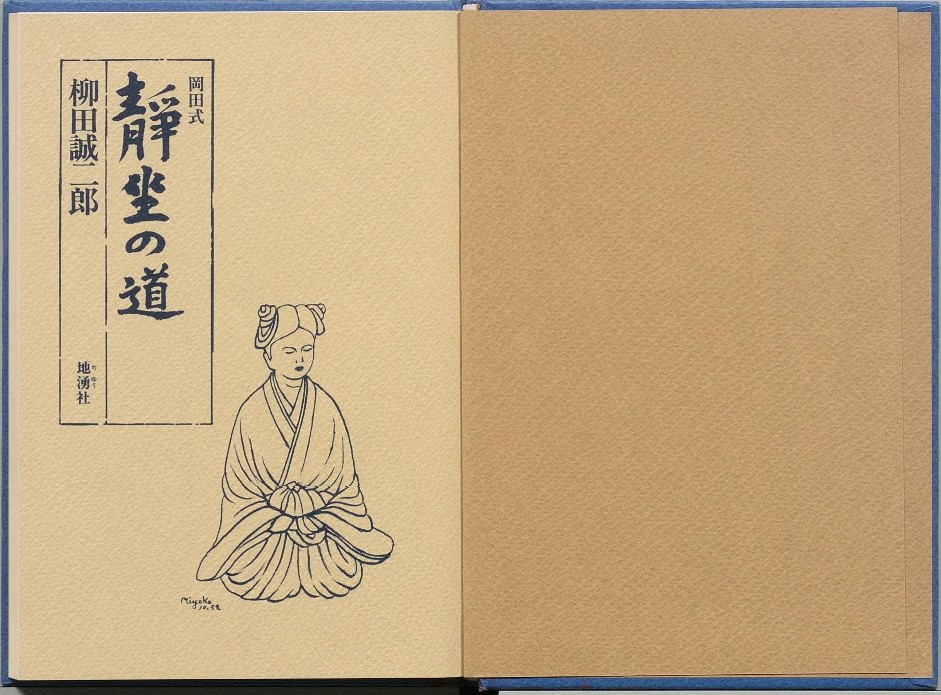 岡田式
靜坐の道
柳田誠二郎
地湧社
ぢゆう
Miyoko
10.58